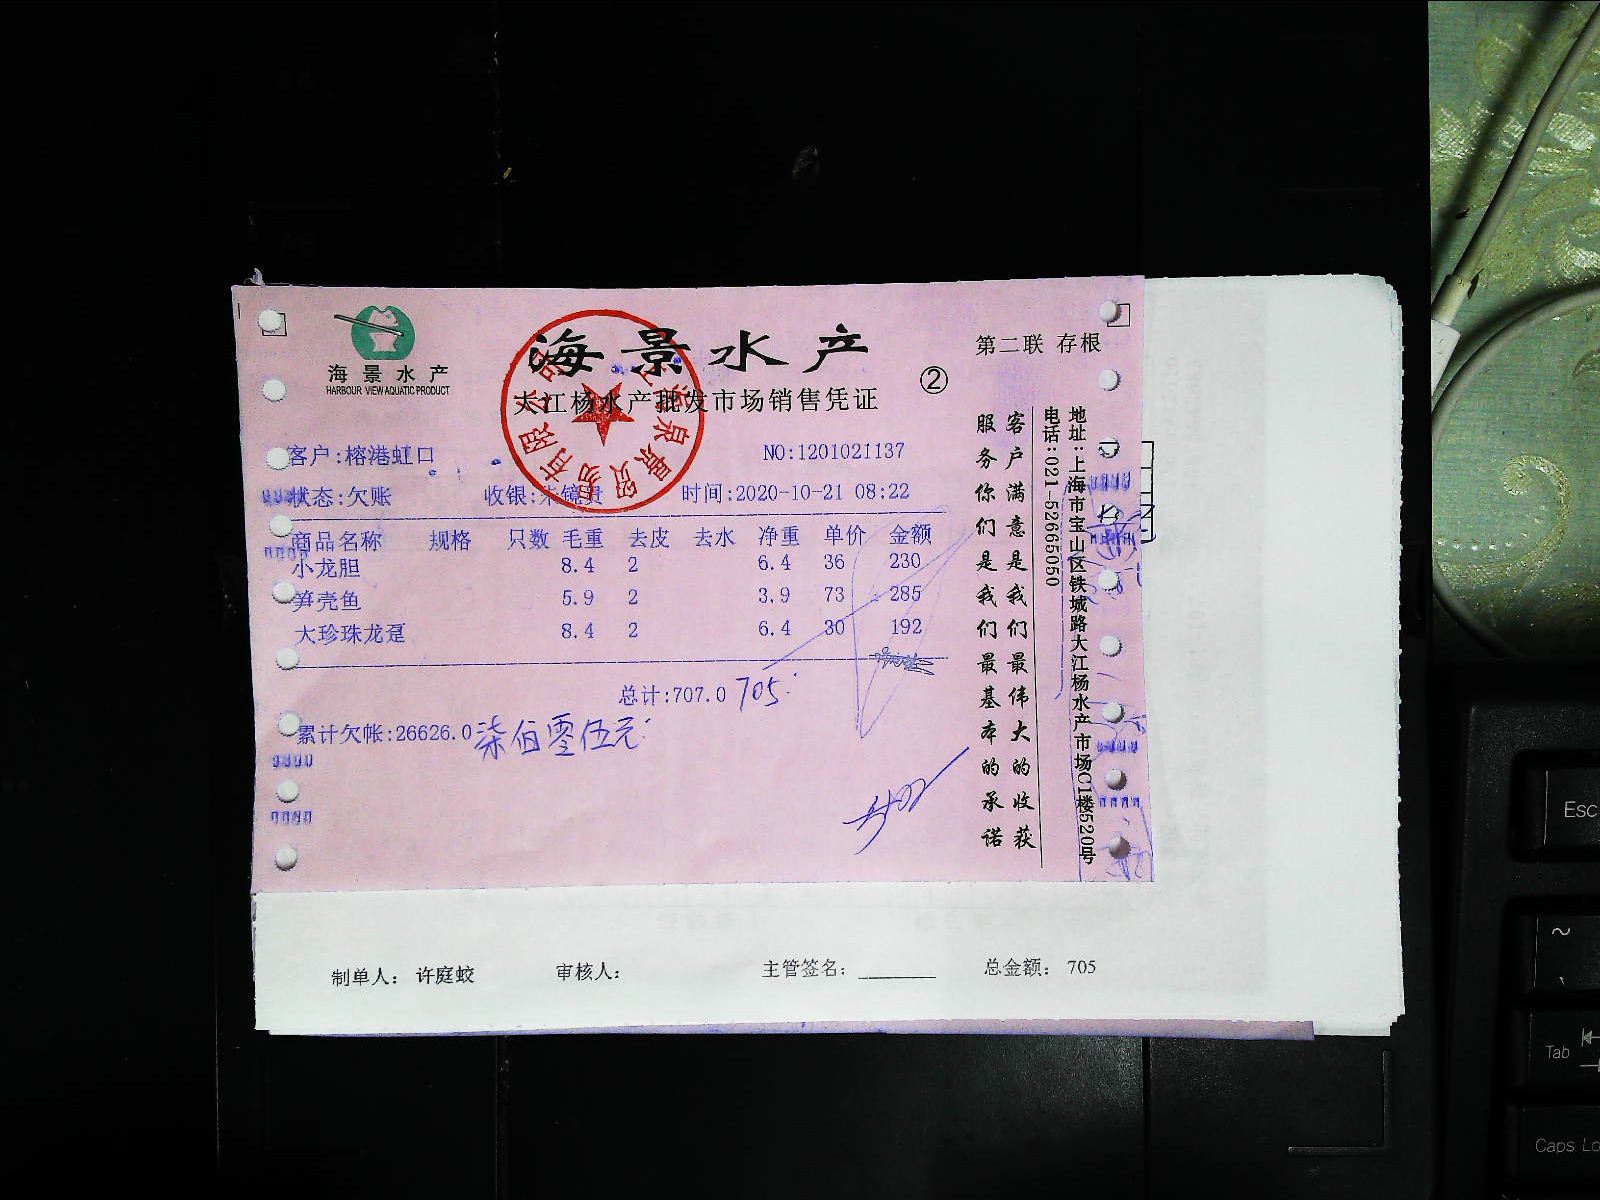 海景水产
HARBOUR VIEW AQUATIC PRODUCT
海景水产
大江杨水产批发市场销售凭证
②
第二联 存根
客户:榕港虹口
NO:1201021137
状态:欠账 收银: 时间:2020-10-21 08:22
商品名称 规格 只数 毛重 去皮 去水 净重 单价 金额
小龙胆 8.4 2 6.4 36 230
笋壳鱼 5.9 2 3.9 73 285
大珍珠龙趸 8.4 2 6.4 30 192
总计:707.0 705
累计欠帐:26626.0 柒佰零伍元
客户满意是我们最伟大的收获
服务你们是我们最基本的承诺
地址:上海市宝山区铁城路大江杨水产市场C1楼520号
电话:021-52665050
制单人: 许庭蛟 审核人: 主管签名: 总金额: 705
Esc
~
Tab
Caps Lo